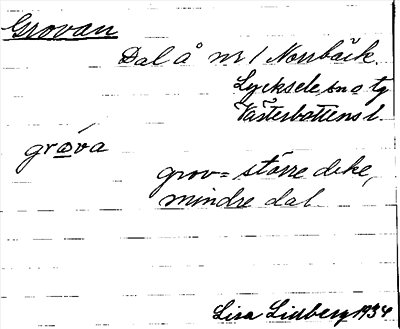 Grovan
Dal å nr 1 Norrbäck
Lycksele sn o tg
Västerbottens l.
gròva
grov = större dike,
mindre dal
Lisa Lidberg 1934